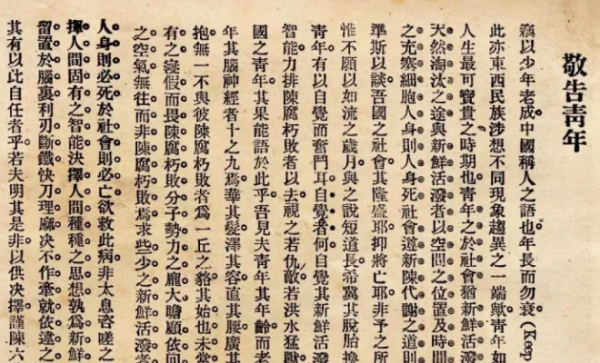 敬告青年
竊以少年老成中國稱人之語也年長而勿衰(Keep
此亦東西民族涉想不同現象趨異之一端歟青年如
人生最可寶貴之時期也青年之於社會猶新鮮活
天然淘汰之途與新鮮活潑者以空間之位置及時間
之充塞細胞人身則人身死社會遵新陳代謝之道則
準斯以談吾國之社會其隆盛耶抑將亡耶非予之所
惟不願以如流之歲月與之說短道長希冀其脫胎換
青年有以自覺而奮鬥耳自覺者何自覺其新鮮活
智能力排陳腐朽敗者以去視之若仇敵若洪水猛獸
國之青年其果能語於此乎吾見夫青年其年齡而老
年其腦神經者十之九焉華其髮澤其容直其腰廣其
抱無一不與彼陳腐朽敗者爲一丘之貉其始也未嘗
有之寖假而畏陳腐朽敗分子勢力之龐大瞻顧依回
之空氣無往而非陳腐朽敗焉求些少之新鮮活潑者
人身則必死於社會則必亡欲救此病非太息咨嗟之
揮人間固有之智能決擇人間種種之思想孰爲新鮮
留置於腦裏利刃斷鐵快刀理麻決不作牽就依違之
其有以此自任者乎若夫明其是非以供決擇謹陳六